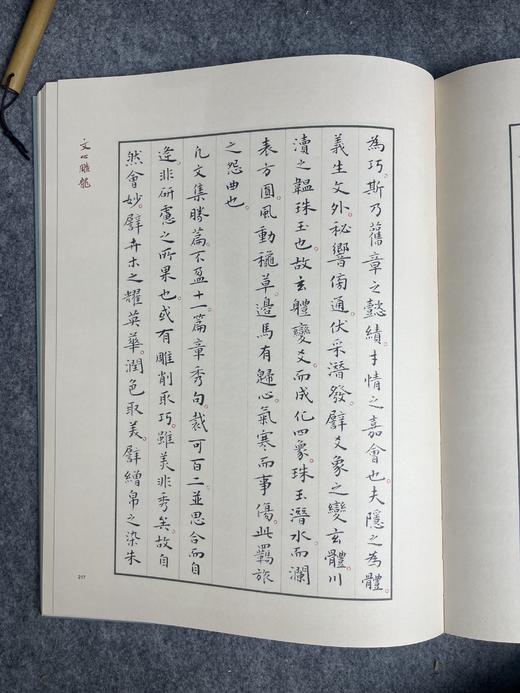 為巧。斯乃舊章之懿績。才情之嘉會也。夫隱之為體。
義生文外。秘響傍通。伏采潛發。譬爻象之變玄體川
瀆之韞珠玉也。故玄體變爻而成化四象。珠玉潛水而瀾
表方圓。風動穐草。邊馬有歸心。氣寒而事傷。此羈旅
之怨曲也。
凡文集勝篇。不盈十一篇章秀句。裁可百二並思合而自
逢。非研慮之所果也。或有雕削取巧。雖美非秀矣。故自
然會妙。譬卉木之耀英華。潤色取美。譬繒帛之染朱
文心雕龍
217